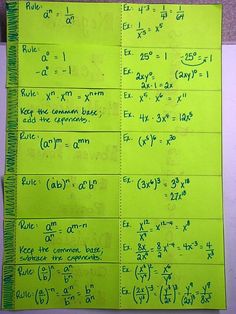 Rule: aⁿ = 1/aⁿ
Ex. 4⁻³ = 1/4³ = 1/64
Ex. 1/x⁻⁵ = x⁵
Rule: a⁰ = 1
-a⁰ = -1
Ex. 25⁰ = 1 -25⁰ = -1
Ex. 2xy⁰ = (2xy)⁰ = 1
2x·1 = 2x
Rule: xⁿ·xᵐ = xⁿ⁺ᵐ
Keep the common base;
add the exponents.
Ex. x⁵·x⁶ = x¹¹
Ex. 4x·3x⁴ = 12x⁵
Rule: (aⁿ)ᵐ = aᵐⁿ
Ex. (x⁵)⁶ = x³⁰
Rule: (ab)ⁿ = aⁿbⁿ
Ex: (3x⁶)³ = 3³x¹⁸
= 27x¹⁸
Rule: aᵐ/aⁿ = aᵐ⁻ⁿ
Keep the common base;
subtract the exponents.
Ex. x¹²/x⁴ = x¹²⁻⁴ = x⁸
Ex. 8x/2x⁴ = 8/2 x¹⁻⁴ = 4x⁻³ = 4/x³
Rule: (a/b)ⁿ = aⁿ/bⁿ
Rule: (a/b)⁻ⁿ = a⁻ⁿ/b⁻ⁿ = bⁿ/aⁿ